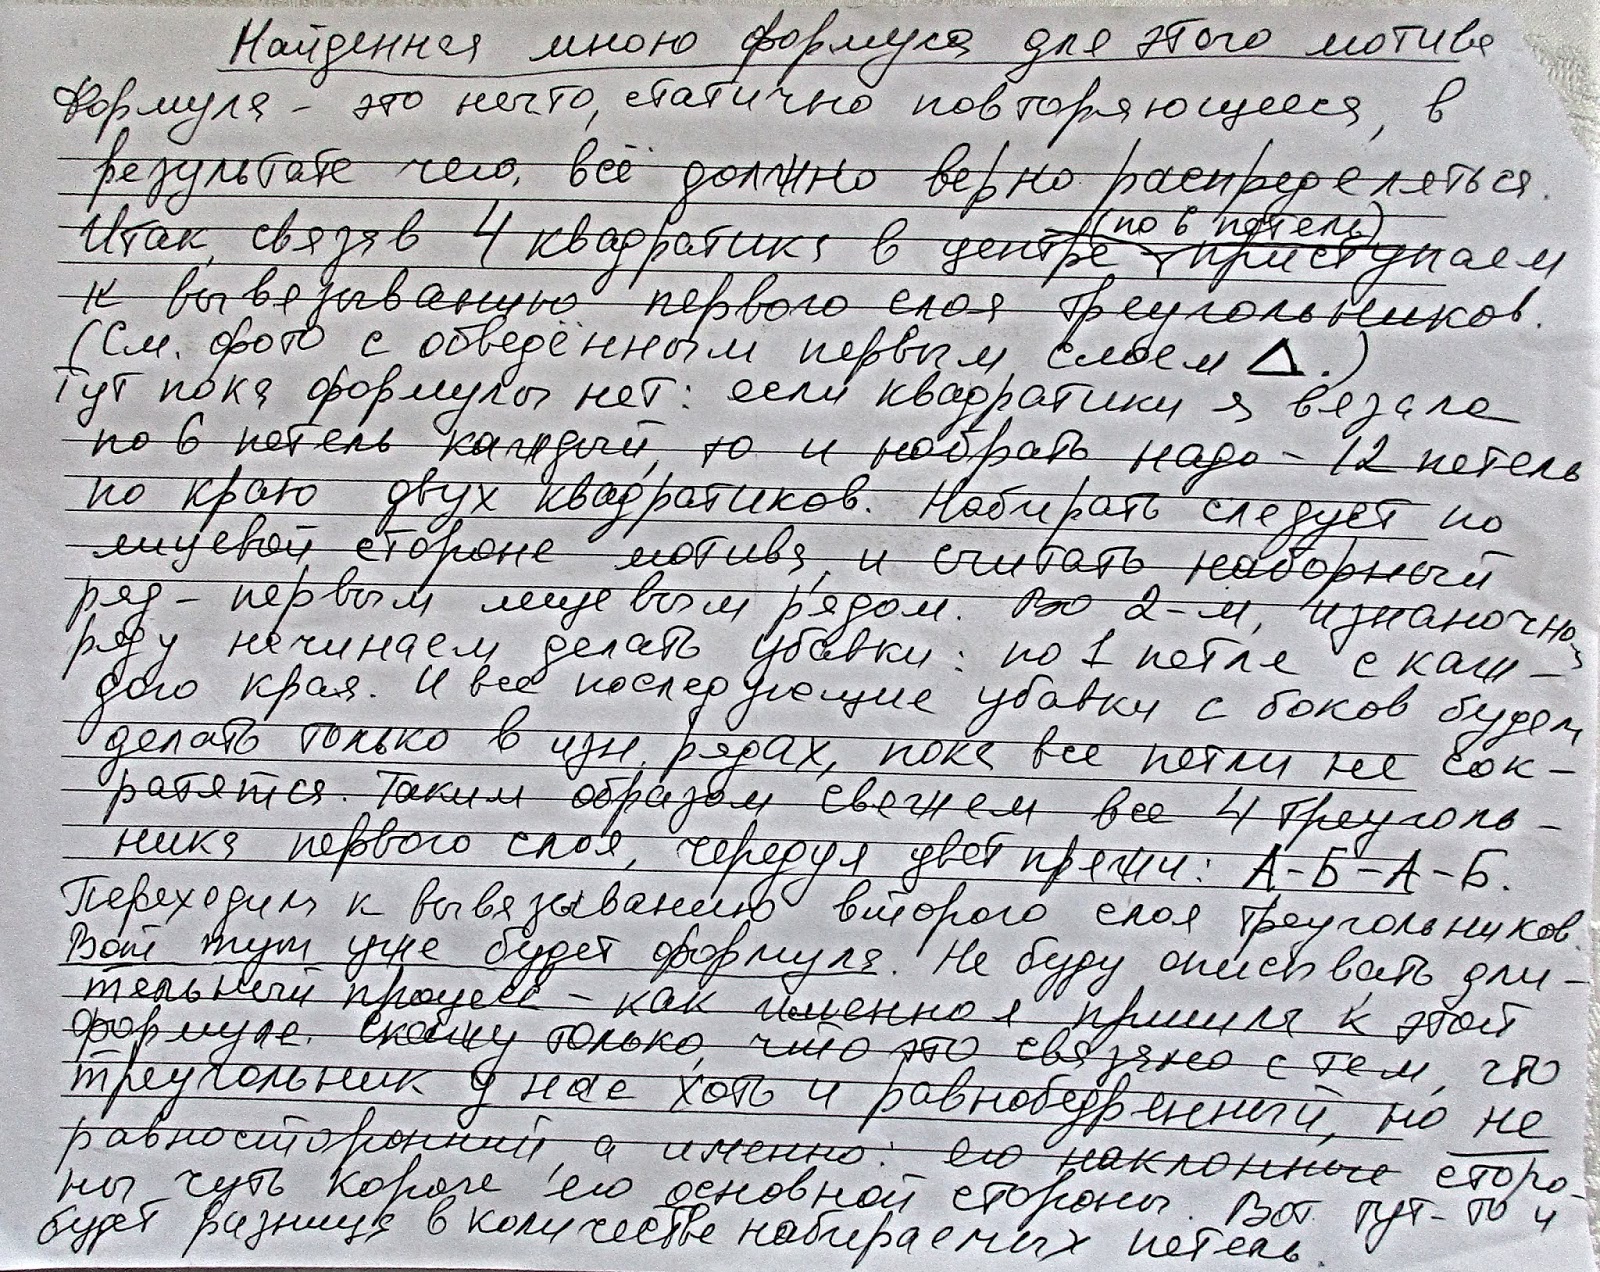 Найденная мною формула для этого мотива
Формула - это нечто, статично повторяющееся, в
результате чего, всё должно верно распределяться.
(по 6 петель)
Итак, связав 4 квадратика в центре - приступаем
к вывязыванию первого слоя треугольников.
(См. фото с обведённым первым слоем △.)
Тут пока формулы нет: если квадратики я вязала
по 6 петель каждый, то и набрать надо - 12 петель
по краю двух квадратиков. Набирать следует по
лицевой стороне мотива, и считать наборный
ряд - первым лицевым рядом. Во 2-м, изнаночном
ряду начинаем делать убавки: по 1 петле с каж-
дого края. И все последующие убавки с боков будем
делать только в изн. рядах, пока все петли не сок-
ратятся. Таким образом свяжем все 4 треуголь-
ника первого слоя, чередуя цвет пряжи: А-Б-А-Б.
Переходим к вывязыванию второго слоя треугольников.
Вот тут уже будет формула. Не буду описывать дли-
тельный процесс - как именно я пришла к этой
формуле. Скажу только, что это связано с тем, что
треугольник у нас хоть и равнобедренный, но не
равносторонний, а именно: его наклонные сторо-
ны чуть короче его основной стороны. Вот тут-то и
будет разница в количестве набираемых петель.